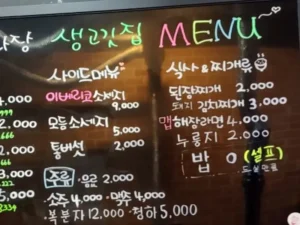 생고깃집 MENU
사이드메뉴
이베리코소세지
9,000
모듬소세지
5,000
통버섯 2,000
주류 음료 2,000
소주 4,000 맥주 4,000
복분자 12,000 청하 5,000
식사 & 찌개류
된장찌개 2.000
돼지 김치찌개 3.000
맵 해장라면 4.000
누룽지 2.000
밥 0 (셀프)